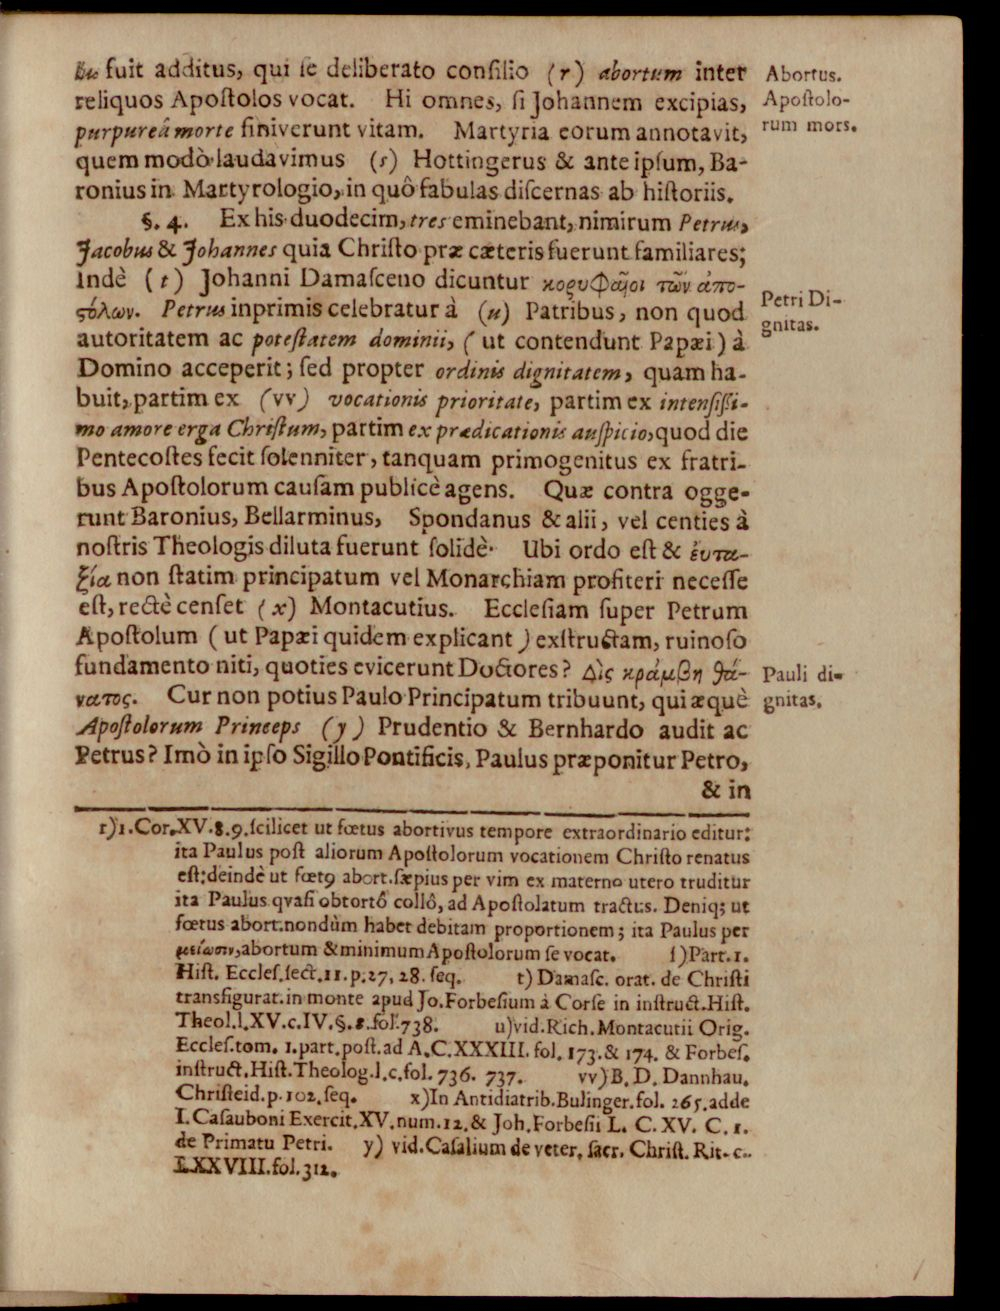 lus fuit additus, qui ſe deliberato conſilio (r) abortum inter
reliquos Apoſtolos vocat. Hi omnes, ſi Johannem excipias,
purpureâ morte finiverunt vitam. Martyria eorum annotavit,
quem modò laudavimus (ſ) Hottingerus & ante ipſum, Ba-
ronius in Martyrologio, in quô fabulas diſcernas ab hiſtoriis.
§. 4. Ex his duodecim, tres eminebant, nimirum Petrus,
Jacobus & Johannes quia Chriſto præ cæteris fuerunt familiares;
Indè (t) Johanni Damaſceno dicuntur κορυφαῖοι τῶν ἀπο-
ςόλων. Petrus inprimis celebratur à (u) Patribus, non quod
autoritatem ac poteſtatem dominii, (ut contendunt Papæi) à
Domino acceperit; ſed propter ordinis dignitatem, quam ha-
buit, partim ex (vv) vocationis prioritate, partim ex intenſiſſi-
mo amore erga Chriſtum, partim ex prædicationis auſpicio, quod die
Pentecoſtes fecit ſolenniter, tanquam primogenitus ex fratri-
bus Apoſtolorum cauſam publicè agens. Quæ contra ogge-
runt Baronius, Bellarminus, Spondanus & alii, vel centies à
noſtris Theologis diluta fuerunt ſolidè. Ubi ordo eſt & ἐυτα-
ξία non ſtatim principatum vel Monarchiam profiteri neceſſe
eſt, rectè cenſet (x) Montacutius. Eccleſiam ſuper Petrum
Apoſtolum (ut Papæi quidem explicant) exſtructam, ruinoſo
fundamento niti, quoties evicerunt Doctores? Δὶς κράμβη θά-
νατος. Cur non potius Paulo Principatum tribuunt, qui æquè
Apoſtolorum Princeps (y) Prudentio & Bernhardo audit ac
Petrus? Imò in ipſo Sigillo Pontificis, Paulus præponitur Petro,
& in
Abortus.
Apoſtolo-
rum mors.
Petri Di-
gnitas.
Pauli di-
gnitas.
r) 1. Cor. XV. 8. 9. ſcilicet ut fœtus abortivus tempore extraordinario editur:
ita Paulus poſt aliorum Apoſtolorum vocationem Chriſto renatus
eſt; deindè ut fœtꝰ abort. ſæpius per vim ex materno utero truditur
ita Paulus qvaſi obtortô collô, ad Apoſtolatum tractus. Deniq; ut
fœtus abort. nondùm habet debitam proportionem; ita Paulus per
μείωσιν, abortum & minimum Apoſtolorum ſe vocat. ſ) Part. 1.
Hiſt. Eccleſ. ſect. 11. p. 27, 28. ſeq. t) Damaſc. orat. de Chriſti
transfigurat. in monte apud Jo. Forbeſium à Corſe in inſtruct. Hiſt.
Theol. l. XV. c. IV. §. 8. fol. 738. u) vid. Rich. Montacutii Orig.
Eccleſ. tom. 1. part. poſt. ad A. C. XXXIII. fol. 173. & 174. & Forbeſ.
inſtruct. Hiſt. Theolog. l. c. fol. 736. 737. vv) B. D. Dannhau.
Chriſteid. p. 102. ſeq. x) In Antidiatrib. Bulinger. fol. 265. adde
I. Caſauboni Exercit. XV. num. 12. & Joh. Forbeſii L. C. XV. C. 1.
de Primatu Petri. y) vid. Caſalium de veter. ſacr. Chriſt. Rit. c.
LXXVIII. fol. 312.